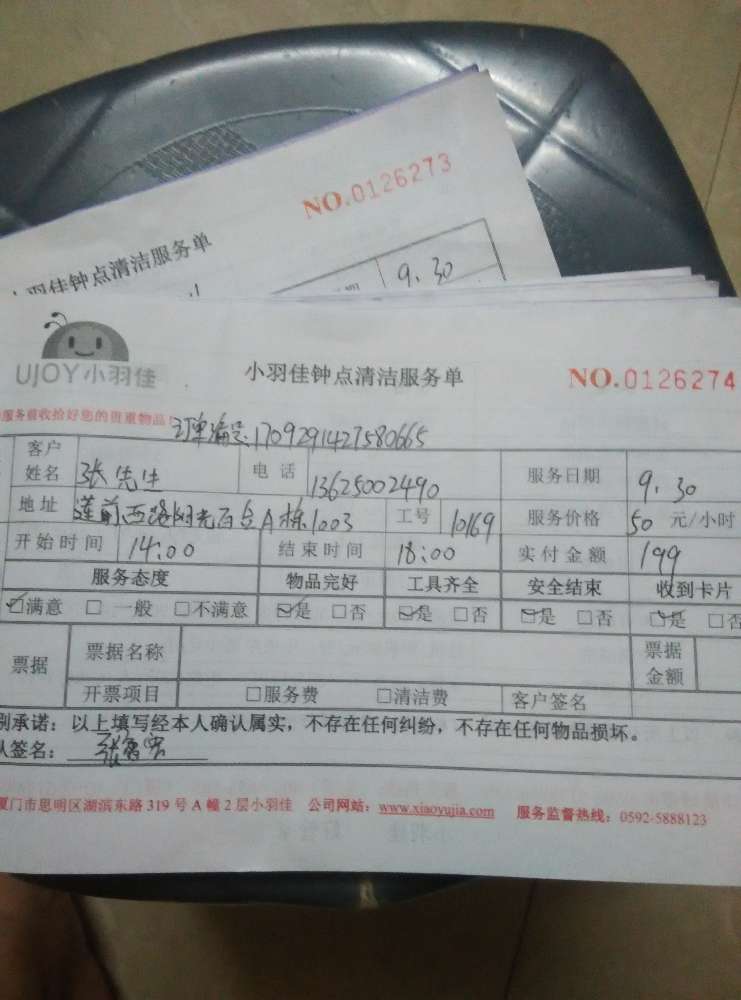 NO.0126273
小羽佳钟点清洁服务单
9.30
UJOY小羽佳
小羽佳钟点清洁服务单
NO.0126274
服务前收拾好您的贵重物品!
订单编号:1709291427580665
客户姓名 张先生 电话 13625002490 服务日期 9.30
地址 莲前西路阳光百合A栋1003 工号 10169 服务价格 50 元/小时
开始时间 14:00 结束时间 18:00 实付金额 199
服务态度 物品完好 工具齐全 安全结束 收到卡片
☑满意 □一般 □不满意 ☑是 □否 ☑是 □否 ☑是 □否 ☑是 □否
票据 票据名称 票据金额
开票项目 □服务费 □清洁费 客户签名
别承诺：以上填写经本人确认属实，不存在任何纠纷，不存在任何物品损坏。
人签名：
厦门市思明区湖滨东路 319 号 A 幢 2 层小羽佳 公司网站：www.xiaoyujia.com 服务监督热线：0592-5888123